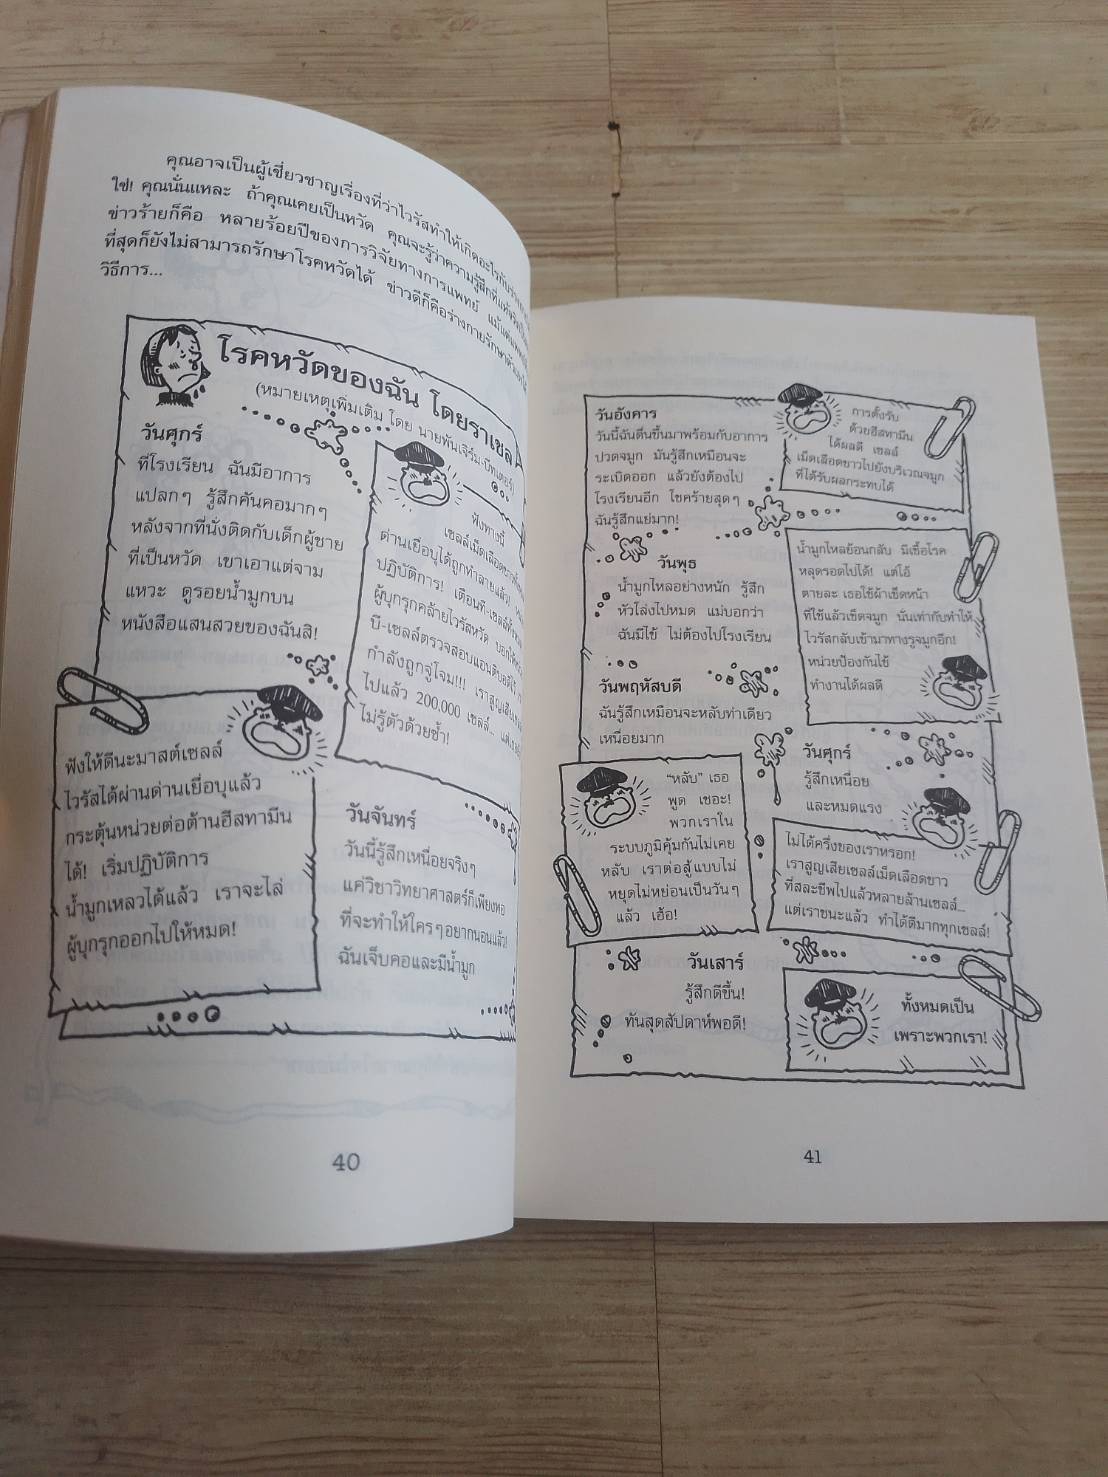 คุณอาจเป็นผู้เชี่ยวชาญเรื่องที่ว่าไวรัสทำให้เกิดอะไรกับ
ใช่! คุณนั่นแหละ ถ้าคุณเคยเป็นหวัด คุณจะรู้ว่าความรู้สึกที่
ข่าวร้ายก็คือ หลายร้อยปีของการวิจัยทางการแพทย์
ที่สุดก็ยังไม่สามารถรักษาโรคหวัดได้ ข่าวดีก็คือร่างกายรักษาตัว
วิธีการ...
โรคหวัดของฉัน โดยราเชล
(หมายเหตุเพิ่มเติม โดย นายพันเจิร์ม-บีทเตอร์)
วันศุกร์
ที่โรงเรียน ฉันมีอาการ
แปลกๆ รู้สึกคันคอมากๆ
หลังจากที่นั่งติดกับเด็กผู้ชาย
ที่เป็นหวัด เขาเอาแต่จาม
แหวะ ดูรอยน้ำมูกบน
หนังสือแสนสวยของฉันสิ!
ฟังทางนี้
เซลล์เม็ดเลือดขาว
ด่านเยื่อบุได้ถูกทำลายแล้ว!
ปฏิบัติการ! เตือนที-เซลล์
ผู้บุกรุกคล้ายไวรัสหวัด
บี-เซลล์ตรวจสอบแอนติบอดี
กำลังถูกจู่โจม!!! เราสูญเสีย
ไปแล้ว 200,000 เซลล์...
ไม่รู้ตัวด้วยซ้ำ!
ฟังให้ดีนะมาสต์เซลล์
ไวรัสได้ผ่านด่านเยื่อบุแล้ว
กระตุ้นหน่วยต่อต้านฮีสทามีน
ได้! เริ่มปฏิบัติการ
น้ำมูกเหลวได้แล้ว เราจะไล่
ผู้บุกรุกออกไปให้หมด!
วันจันทร์
วันนี้รู้สึกเหนื่อยจริงๆ
แค่วิชาวิทยาศาสตร์ก็เพียงพอ
ที่จะทำให้ใครๆอยากนอนแล้ว!
ฉันเจ็บคอและมีน้ำมูก
40
วันอังคาร
วันนี้ฉันตื่นขึ้นมาพร้อมกับอาการ
ปวดจมูก มันรู้สึกเหมือนจะ
ระเบิดออก แล้วยังต้องไป
โรงเรียนอีก โชคร้ายสุดๆ
ฉันรู้สึกแย่มาก!
การตั้งรับ
ด้วยฮีสทามีน
ได้ผลดี เซลล์
เม็ดเลือดขาวไปยังบริเวณจมูก
ที่ได้รับผลกระทบได้
วันพุธ
น้ำมูกไหลอย่างหนัก รู้สึก
หัวโล่งไปหมด แม่บอกว่า
ฉันมีไข้ ไม่ต้องไปโรงเรียน
น้ำมูกไหลย้อนกลับ มีเชื้อโรค
หลุดรอดไปได้! แต่โอ้
ตายละ เธอใช้ผ้าเช็ดหน้า
ที่ใช้แล้วเช็ดจมูก นั่นเท่ากับทำให้
ไวรัสกลับเข้ามาทางรูจมูกอีก!
หน่วยป้องกันไข้
ทำงานได้ผลดี
วันพฤหัสบดี
ฉันรู้สึกเหมือนจะหลับท่าเดียว
เหนื่อยมาก
"หลับ" เธอ
พูด เชอะ!
พวกเราใน
ระบบภูมิคุ้มกันไม่เคย
หลับ เราต่อสู้แบบไม่
หยุดไม่หย่อนเป็นวันๆ
แล้ว เฮ้อ!
วันศุกร์
รู้สึกเหนื่อย
และหมดแรง
ไม่ได้ครึ่งของเราหรอก!
เราสูญเสียเซลล์เม็ดเลือดขาว
ที่สละชีพไปแล้วหลายล้านเซลล์...
แต่เราชนะแล้ว ทำได้ดีมากทุกเซลล์!
วันเสาร์
รู้สึกดีขึ้น!
ทันสุดสัปดาห์พอดี!
ทั้งหมดเป็น
เพราะพวกเรา!
41